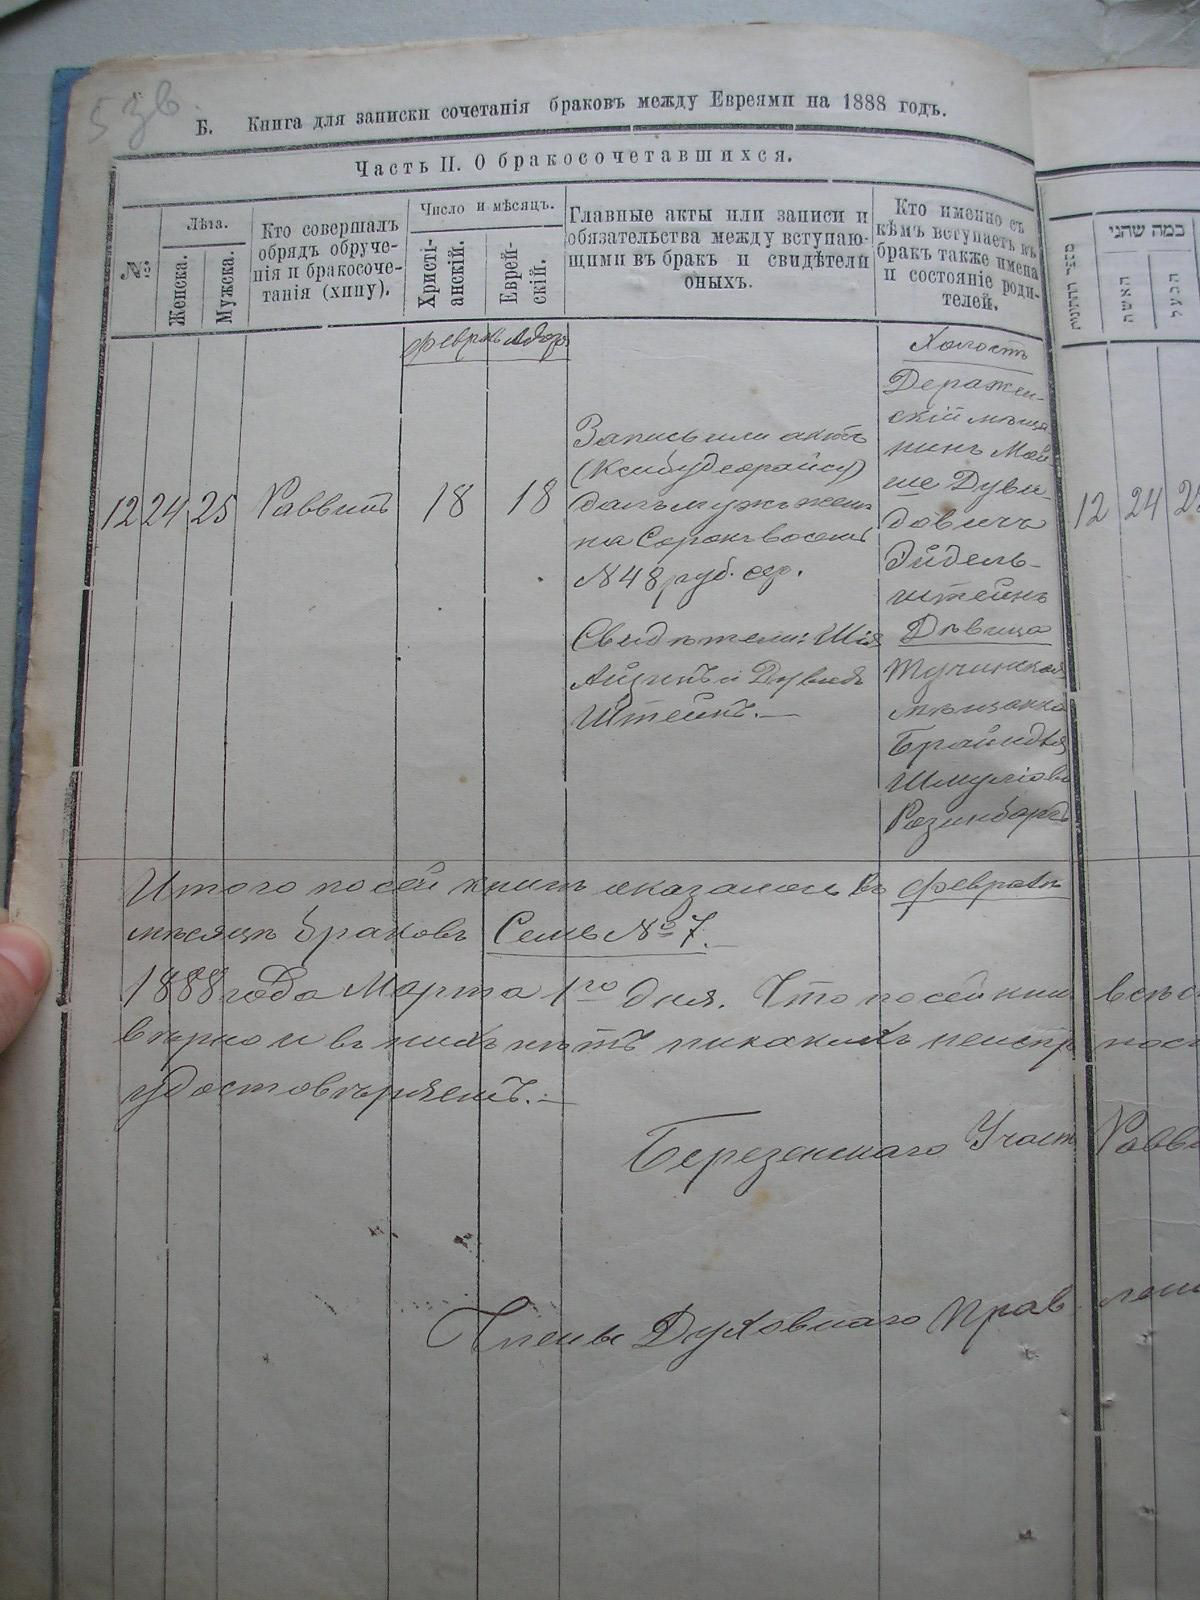 5 зв.
Б. Книга для записки сочетанія браковъ между Евреями на 1888 годъ.
Часть II. О бракосочетавшихся.
№
Лѣта.
Женска.
Мужска.
Кто совершалъ
обрядъ обруче-
нія и бракосоче-
танія (хипу).
Число и мѣсяцъ.
Христі-
анскій.
Еврей-
скій.
Главные акты или записи и
обязательства между вступаю-
щими въ бракъ и свидѣтели
оныхъ.
Кто именно съ
кѣмъ вступаетъ въ
бракъ также имена
и состояніе роди-
телей.
כמה שהני
האשה
הבעל
Февраль Адоръ
12 24 25 Раввинъ 18 18
Запись или актъ
далъ мужъ женѣ
на Сорокъ восемь
№ 48 руб. сер.
Свидѣтели: Шія
Айзикъ и Дувидъ
Штейнъ.
Холостъ
Деражен-
скій мѣща
нинъ Мой
ше Дуви-
довичъ
Эйдель-
штейнъ
Дѣвица
Тучинская
мѣщанка
Брайндля
Шмуліова
Розинбергъ
12 24 25
Итого по сей книгѣ оказалось въ февралѣ
мѣсяцѣ браковъ Семь № 7.
1888 года Марта 1го дня. Что по сей книг всѣ
вѣрно и въ нихъ нѣтъ никакихъ неиспр ност
удостовѣряетъ.
Березенскаго Участ Равви
Члены Духовнаго Прав лені